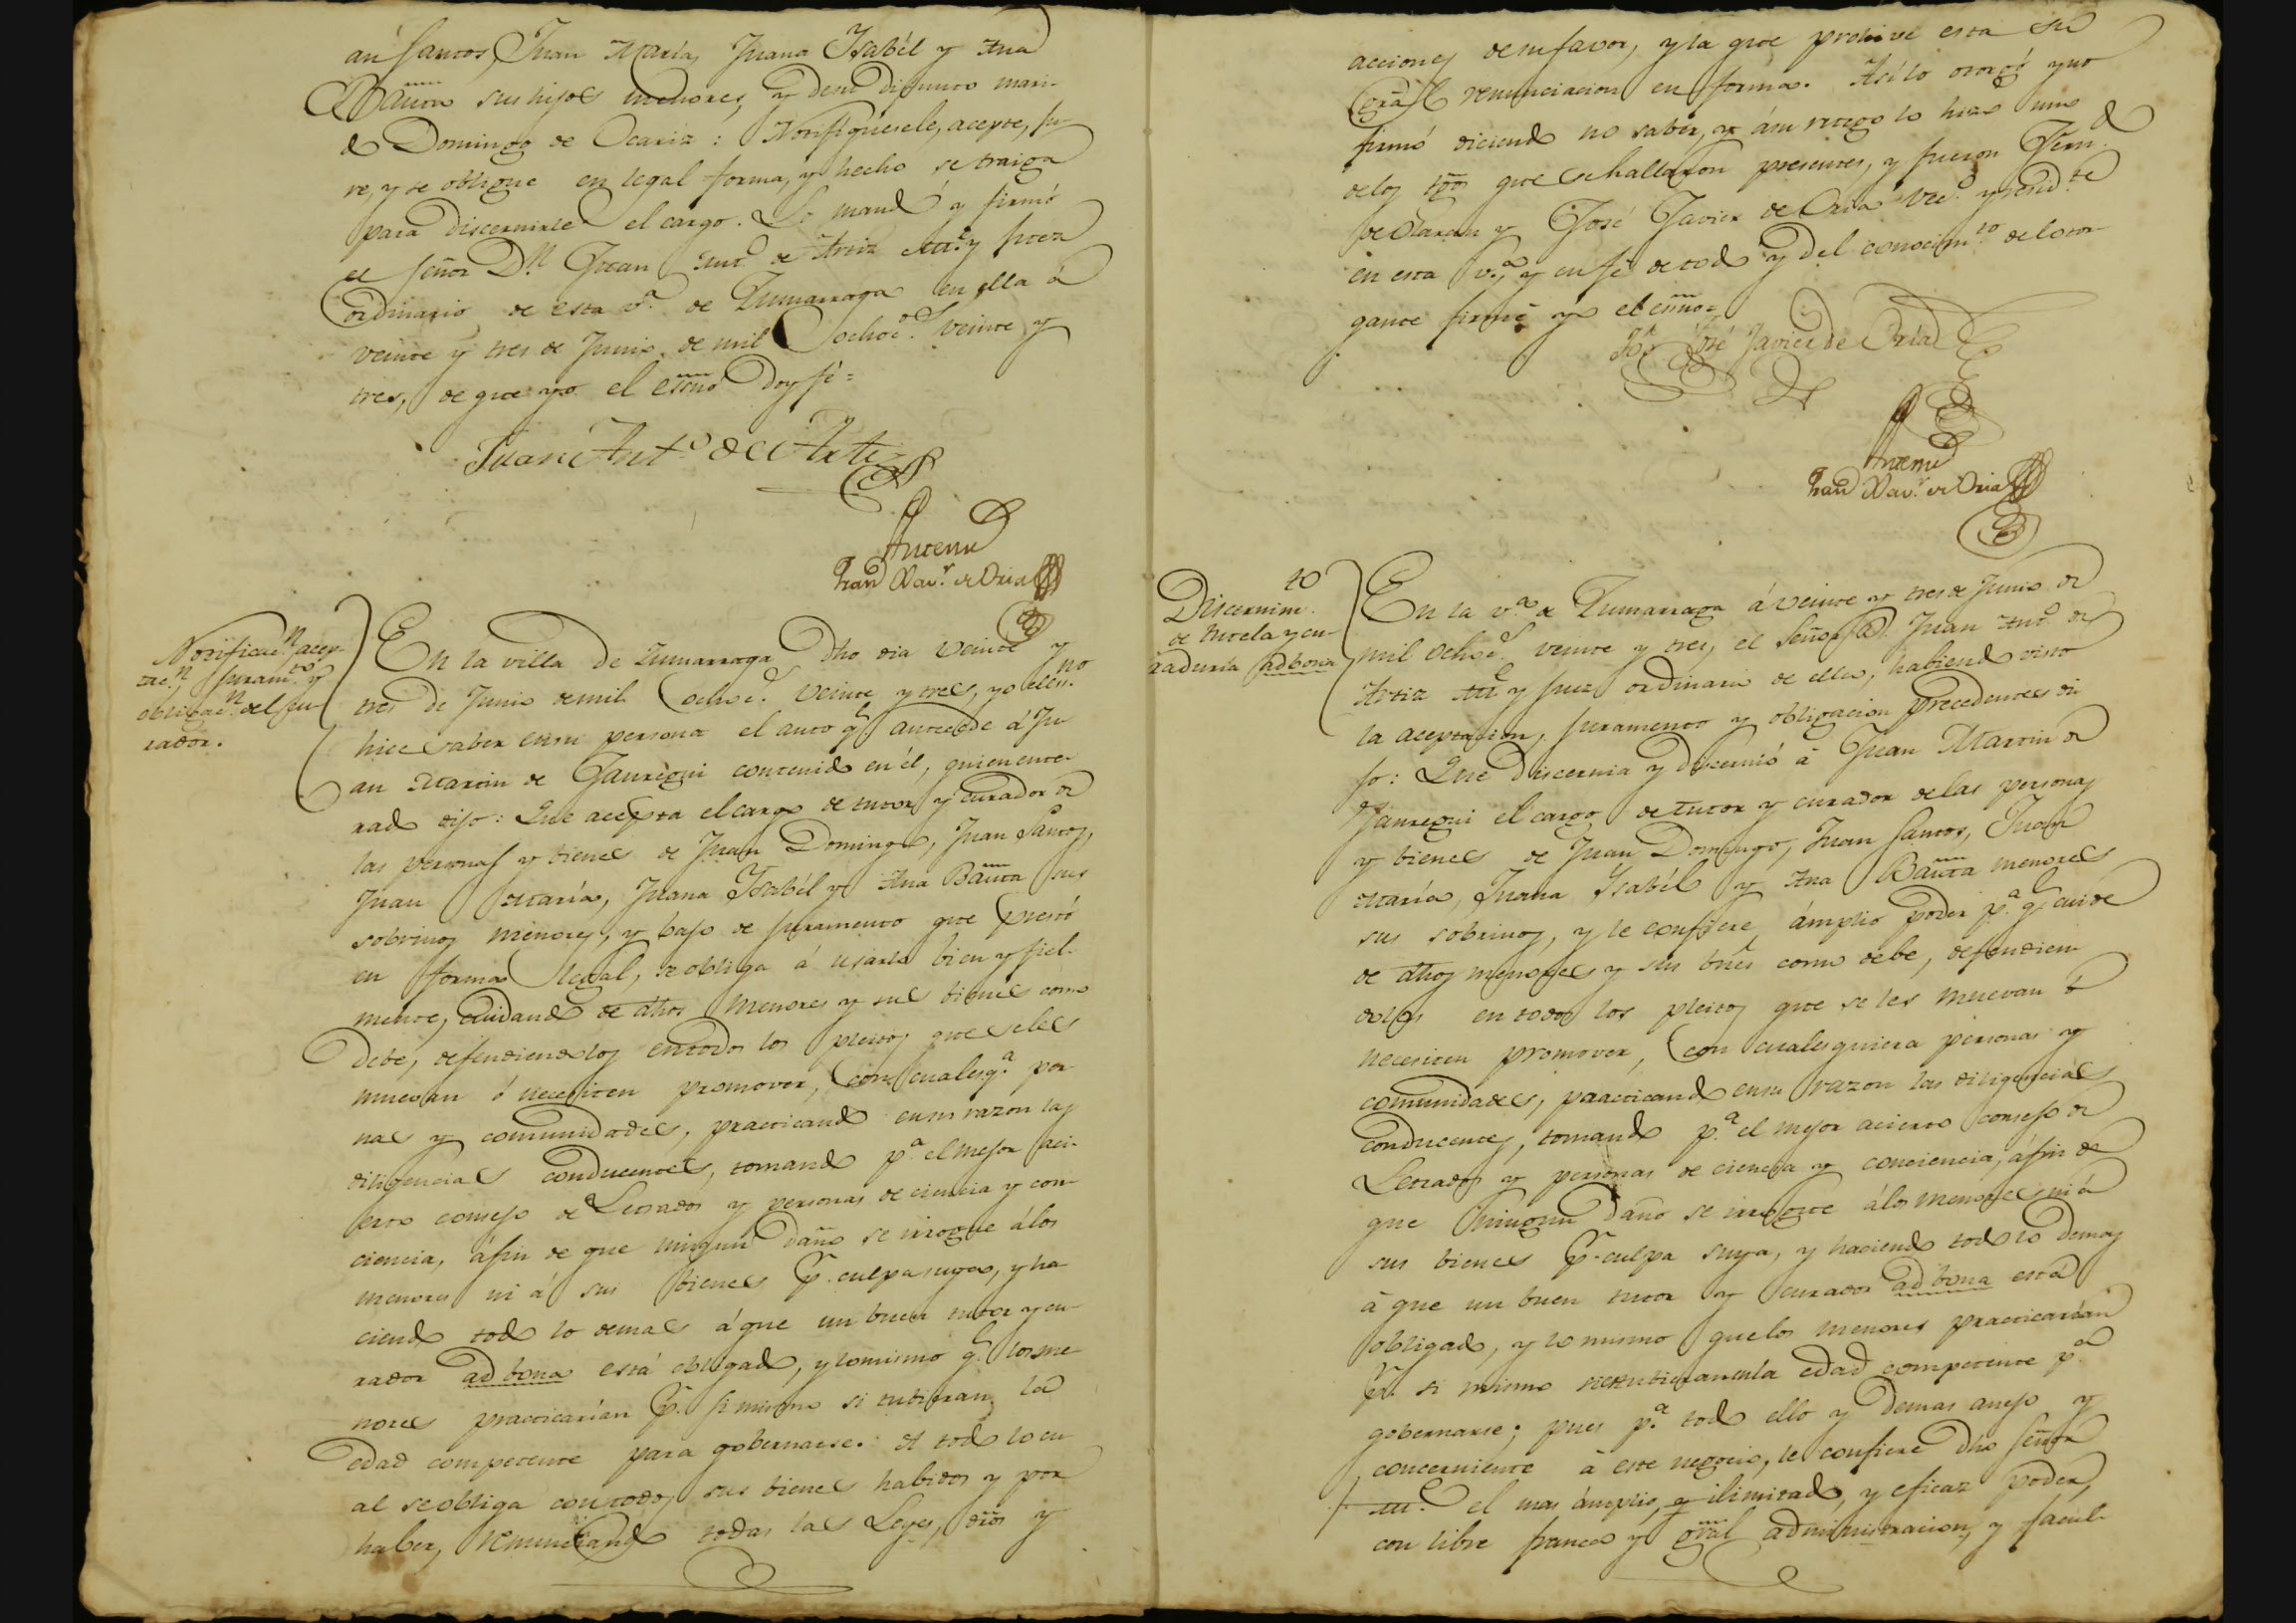 an Santos, Juan María, Juana Ysabél y Ana
Bauta sus hijos menores, y de su difunto mari-
do Domingo de Ocariz: Notifíquesele, acepte, ju-
re, y se obligue en legal forma, y hecho se traiga
para discernirle el cargo. Lo mandó y firmó
el Señor Dn. Juan Anto. de Artiz Alle. y Juez
ordinario de esta va. de Zumarraga en ella á
veinte y tres de Junio de mil ochocs. veinte y
tres, de que yo el essno doy fé=
Juan Anto. de Artiz
Antemi
Fran Xavr. de Oria
Notificacn. acep-
tacn. juramto. y
obligacn. del cu-
rador.
En la villa de Zumarraga dho dia veinte y
tres de Junio de mil ochocs. veinte y tres, yo el esno.
hice saber en su persona el auto qe. antecede á Ju-
an Martin de Jauregui contenido en él, quien ente-
rado dijo: Que acepta el cargo de tutor y curador de
las personas y bienes de Juan Domingo, Juan Santos,
Juan María, Juana Ysabél y Ana Bauta sus
sobrinos menores, y bajo de juramento que prestó
en forma legal, se obliga á usarlo bien y fiel-
mente, cuidando de dhos menores y sus bienes como
debe, defendiendolos en todos los pleitos que se les
muevan ó necesiten promover, con cualesqa. perso-
nas y comunidades, practicando en su razon las
diligencias conducentes, tomando pa. el mejor aci-
erto consejo de Letrados y personas de ciencia y con-
ciencia, áfin de que ningun daño se irrogue á los
menores ni á sus bienes pr. culpa suya, y ha-
ciendo todo lo demas á que un buen tutor y cu-
rador ad bona está obligado, y lo mismo qe. los me-
nores practicarían pr. si mismo si tubieran la
edad competente para gobernarse. A todo lo cu-
al se obliga con todos sus bienes habidos y por
haber, renunciando todas las Leyes, dros y
acciones de su favor, y la que prohive esta su
gral renunciacion en forma. Así lo otorgó y no
firmó diciendo no saber, y á su ruego lo hizo uno
de los tgos que se hallaron presentes, y fueron Fernd.
de y José Javier de Oria vecs. y residte.
en esta va. y en fé de todo y del conocimto. del otor-
gante firmé yo el essno=
Tgo José Javier de Oria
Antemi
Fran Xavr. de Oria
Discernimto.
de tutela y cu-
raduría ad bona
En la va. de Zumarraga á veinte y tres de Junio de
mil ochocs. veinte y tres, el Señor Dn. Juan Anto. de
Artiz Alle. y Juez ordinario de ella, habiendo visto
la aceptacion, juramento y obligacion precedentes di-
jo: Que discernia y discernió á Juan Martin de
Jauregui el cargo de tutor y curador de las personas
y bienes de Juan Domingo, Juan Santos, Juan
María, Juana Ysabél y Ana Bauta menores
sus sobrinos, y le confiere ámplio poder pa. qe. cuide
de dhos menores y sus bnes como debe, defendien-
dolos en todos los pleitos que se les muevan ó
necesiten promover, con cualesquiera personas y
comunidades, practicando en su razon las diligencias
conducentes, tomando pa. el mejor acierto consejo de
Letrados y personas de ciencia y conciencia, áfin de
que ningun daño se irrogue á los menores ni á
sus bienes pr. culpa suya, y haciendo todo lo demas
á que un buen tutor y curador ad bona está
obligado, y lo mismo que los menores practicarían
pr. si mismo si tubieran la edad competente pa.
gobernarse; pues pa. todo ello y demas anejo y
concerniente á este negocio, le confiere dho Señor
Alle. el mas ámplio, y ilimitado, y eficaz poder,
con libre franca y gral administracion, y facul-